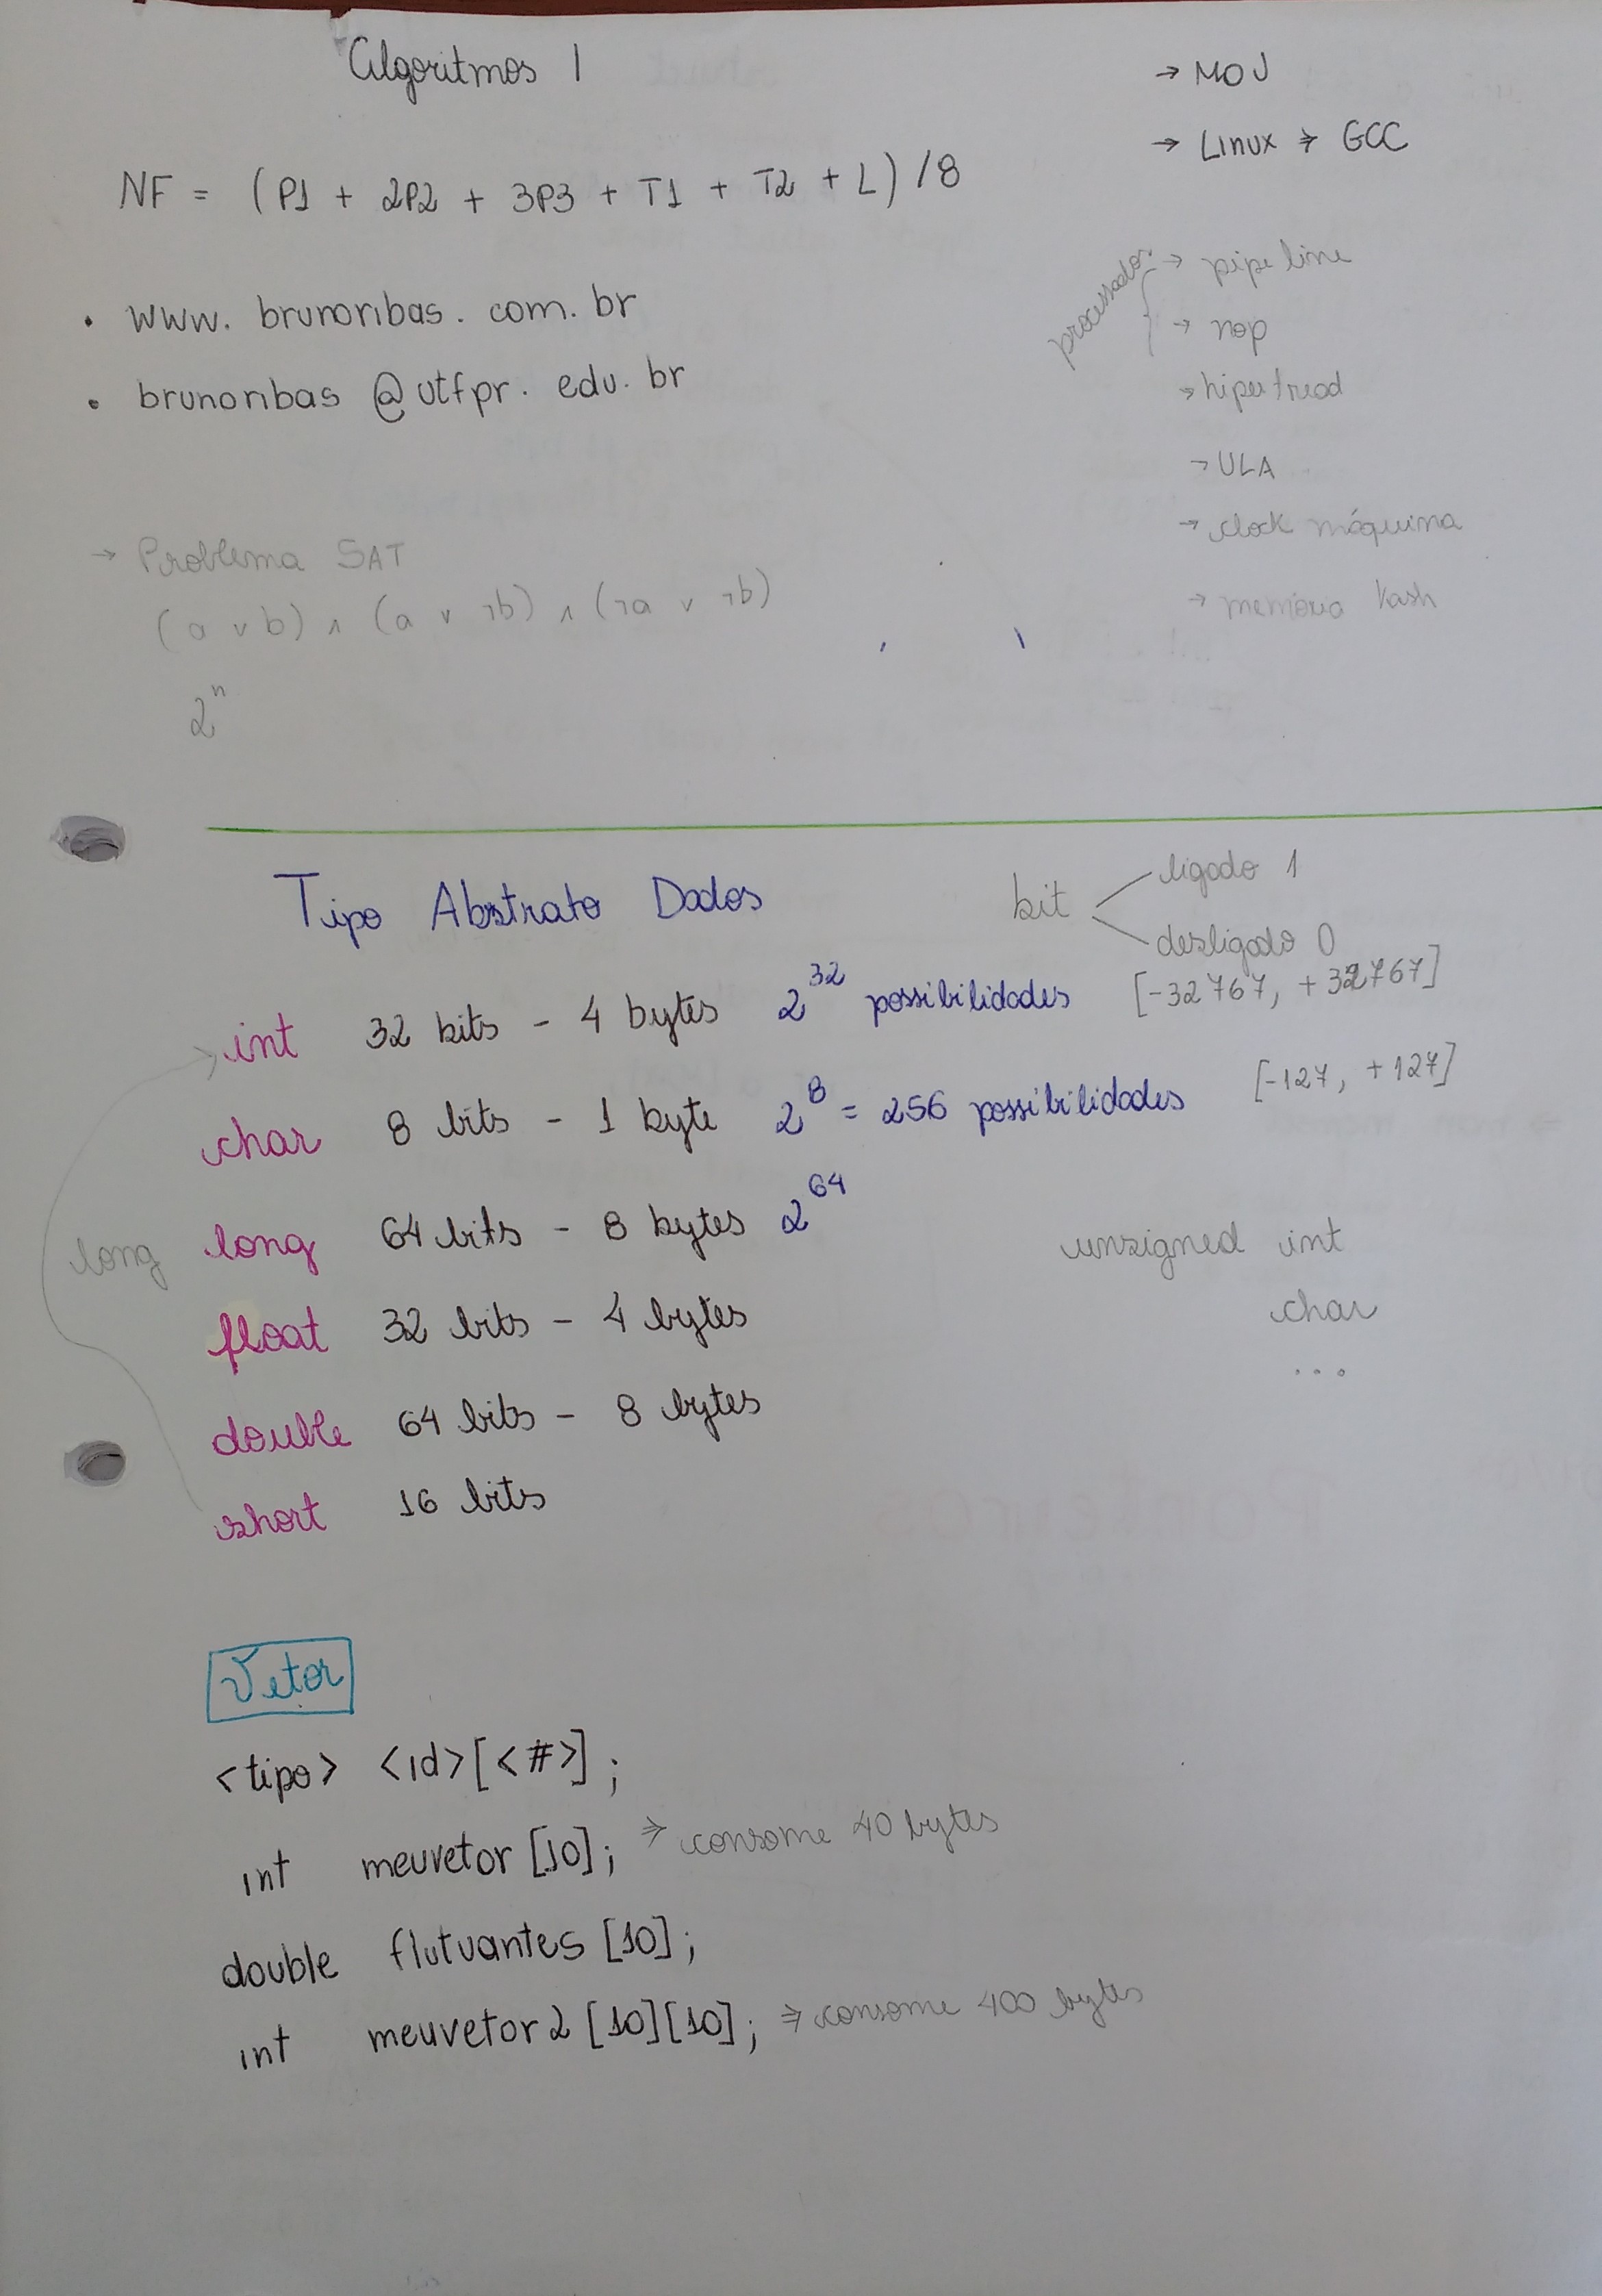 Algoritmos 1
→ MOJ
→ Linux → GCC
NF = (P1 + 2P2 + 3P3 + T1 + T2 + L) /8
• www.brunoribas.com.br
• brunoribas@utfpr.edu.br
processador { → pipeline
→ nop
→ hipertread
→ ULA
→ clock máquina
→ memória kash
→ Problema SAT
(a ∨ b) ∧ (a ∨ ¬b) ∧ (¬a ∨ ¬b)
2^n
Tipo Abstrato Dados
bit
ligado 1
desligado 0
int 32 bits - 4 bytes 2^32 possibilidades [-32767, +32767]
char 8 bits - 1 byte 2^8 = 256 possibilidades [-127, +127]
long long 64 bits - 8 bytes 2^64
float 32 bits - 4 bytes
double 64 bits - 8 bytes
short 16 bits
unsigned int
char
...
Vetor
<tipo> <id>[<#>];
int meuvetor [10]; ⇒ consome 40 bytes
double flutuantes [10];
int meuvetor2 [10][10]; ⇒ consome 400 bytes